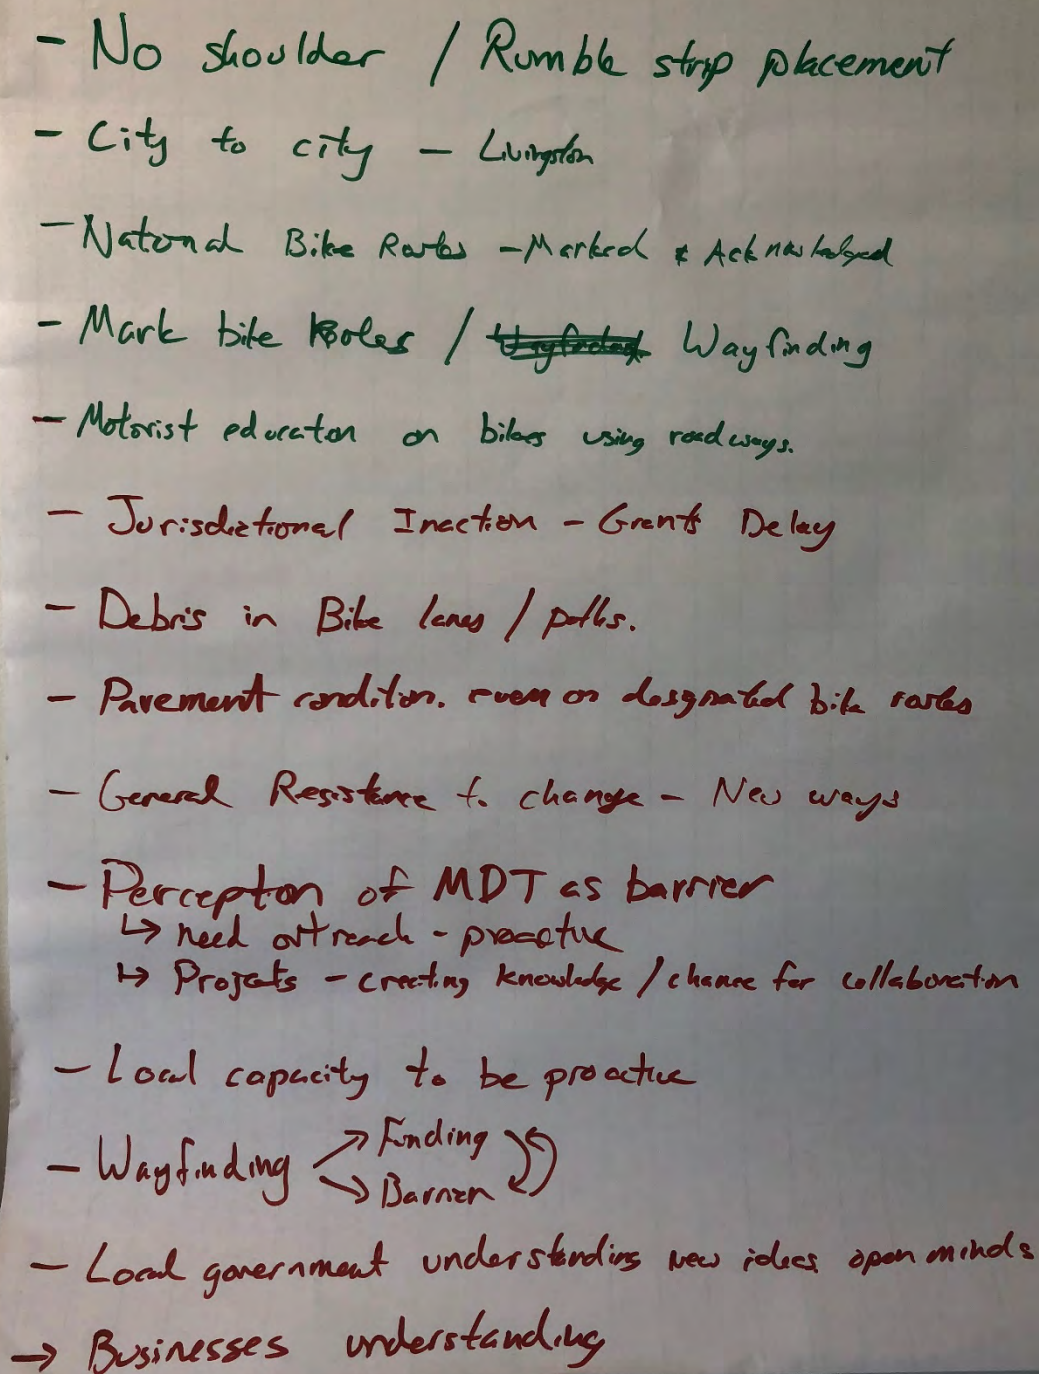 - No shoulder / Rumble strip placement
- City to city - Livingston
- National Bike Routes - Marked & Acknowledged
- Mark bike Routes / Wayfinding
- Motorist education on bikes using roadways.
- Jurisdictional Inaction - Grants Delay
- Debris in Bike lanes / paths.
- Pavement condition. even on designated bike routes
- General Resistance to change - New ways
- Perception of MDT as barrier
↳ need outreach - proactive
↳ Projects - creating knowledge / chance for collaboration
- Local capacity to be proactive
- Wayfinding → Funding
→ Barrier
- Local government understanding new ideas, open minds
→ Businesses understanding